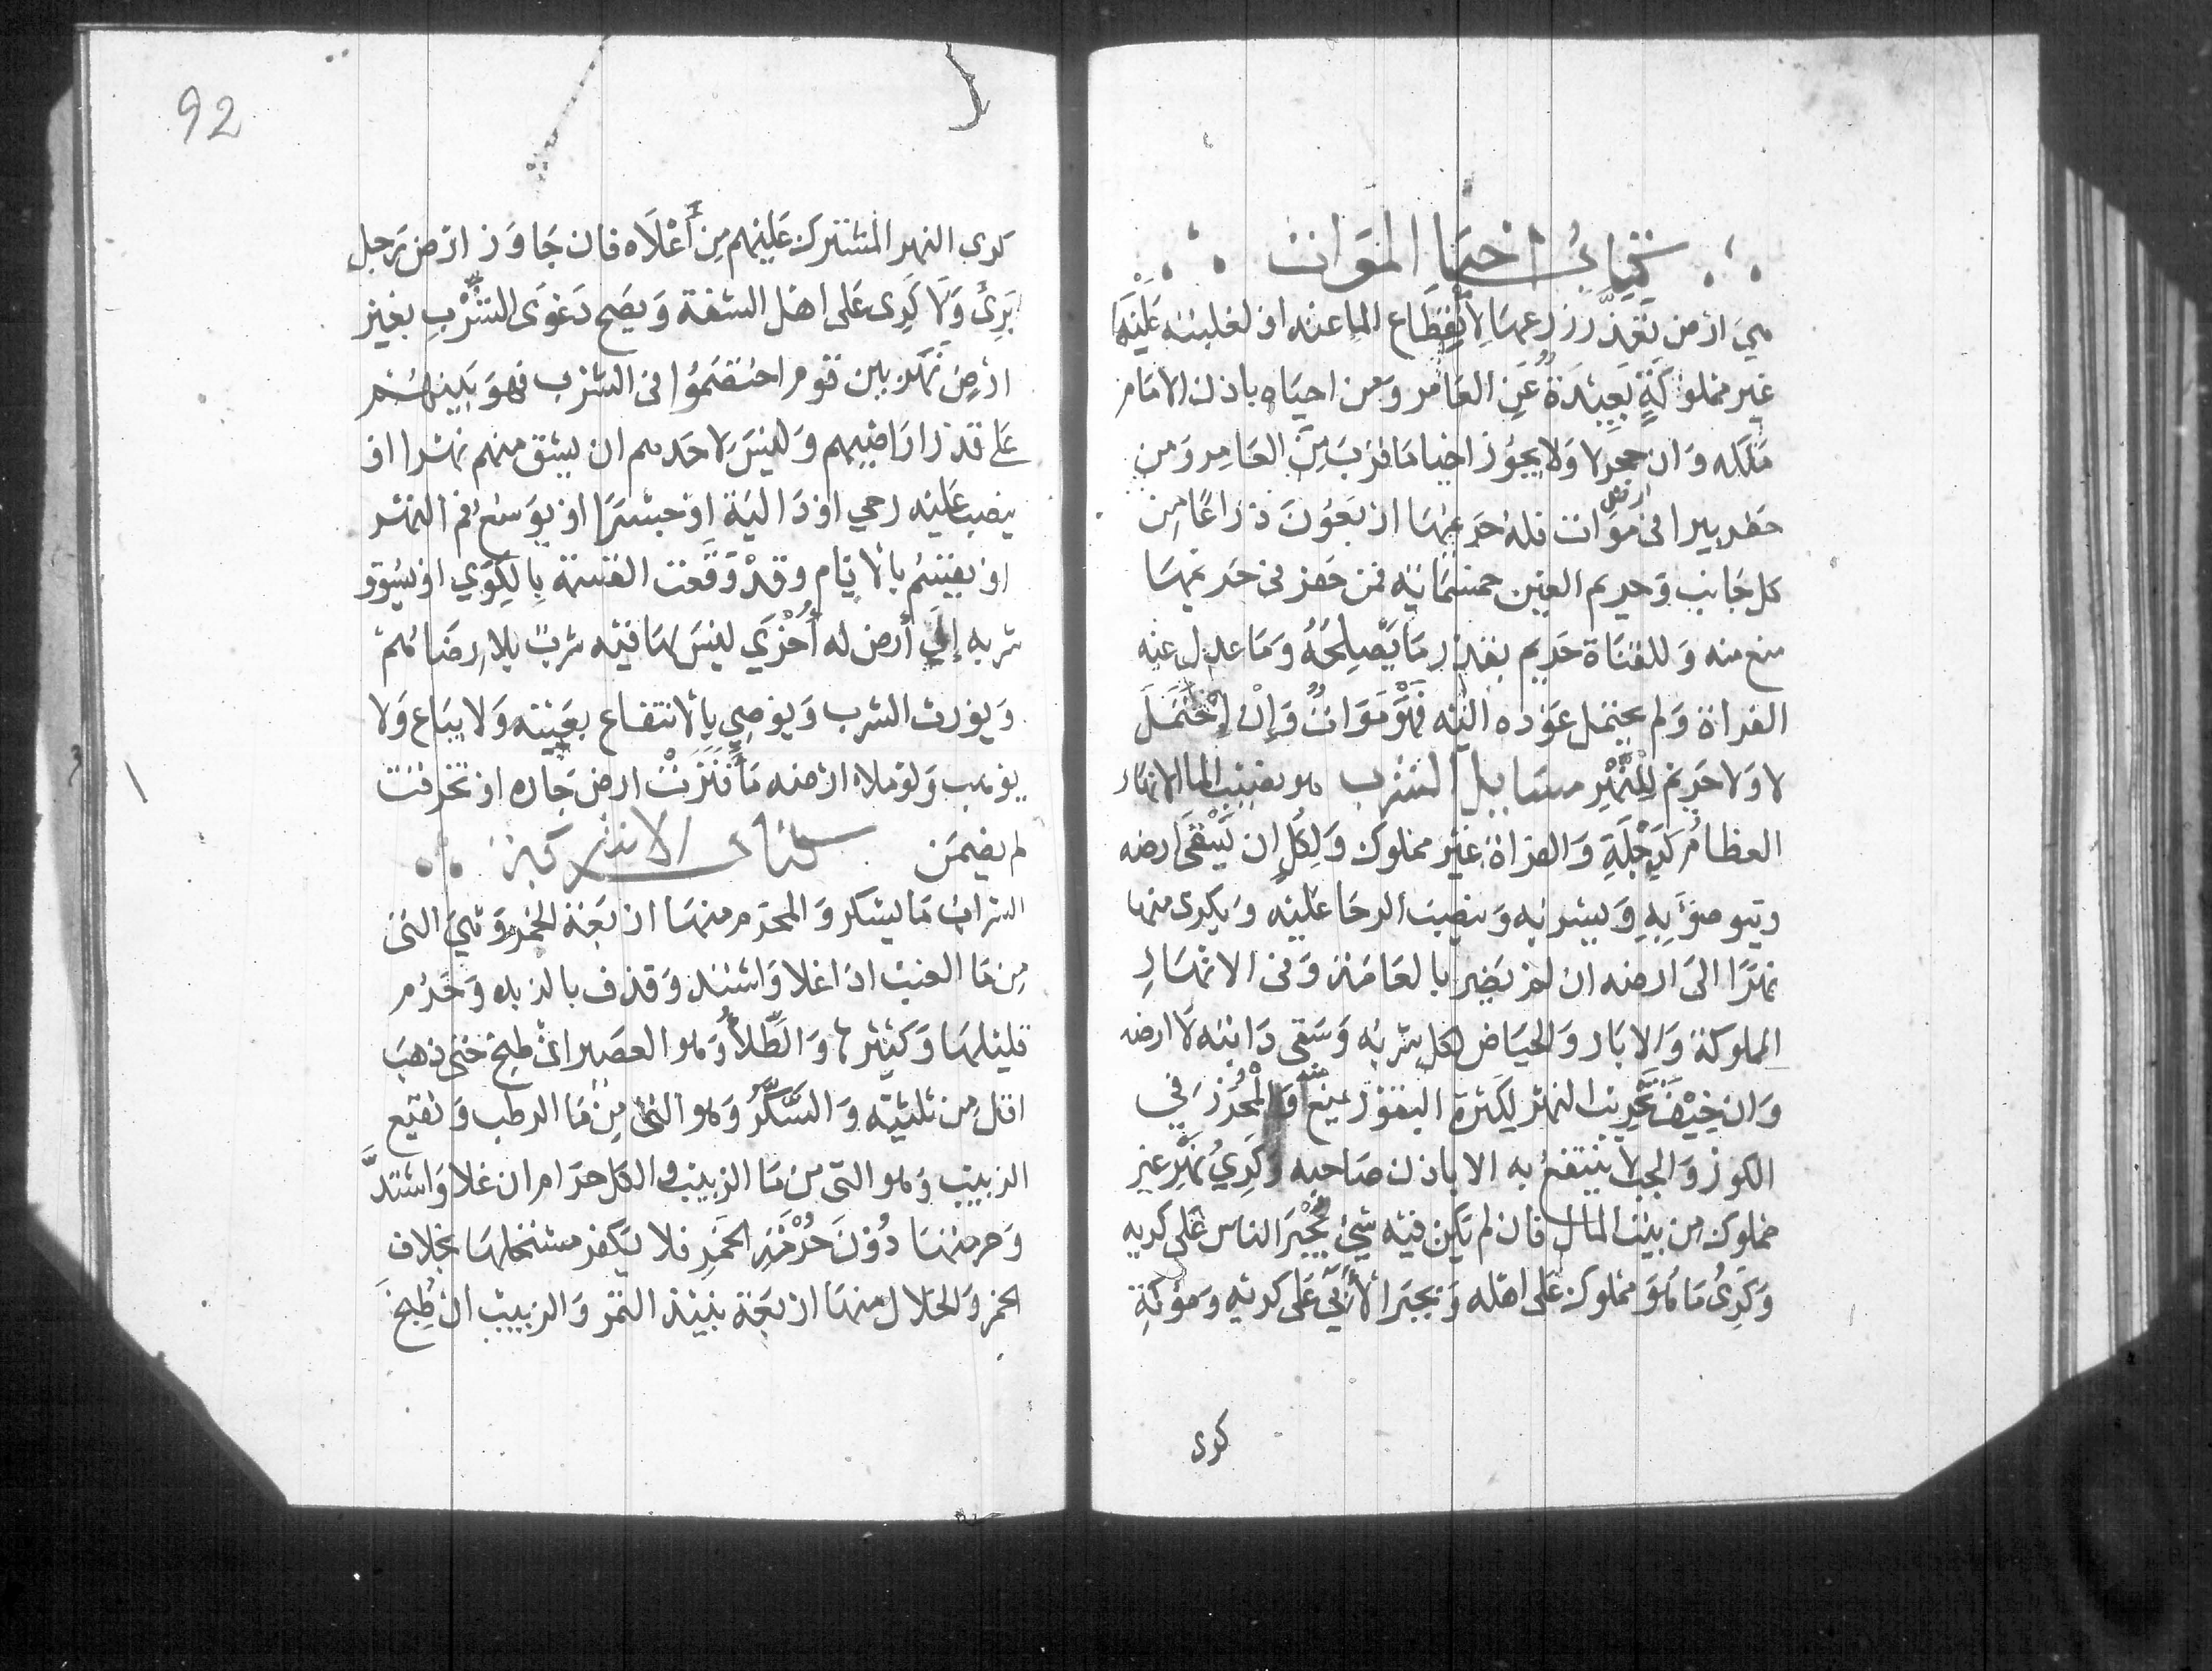 كتاب احيا الموات
هي ارض تعذر زرعها لانقطاع الما عنه او لغلبته عليها
غير مملوكة بعيدة عن العامر ومن احياه باذن الامام
ملكه وان حجر لا ولا يجوز احيا ما قرب من العامر ومن
حفر بيرا في ارض موات فله حريمها اربعون ذراعا من
كل جانب وحريم العين خمسمائة فمن حفر في حريمها
منع منه وللقناة حريم بقدر ما يصلحه وما عدل عنه
الفراة ولم يحتمل عوده اليه فهو موات وإن إحتمل
لا ولا حريم للنهر مسايل الشرب هو نصيب الما الانهار
العظام كدجلة والفراة غير مملوك ولكل ان يسقى ارضه
ويتوضؤ به ويشربه وينصب الرحا عليه ويكرى منها
نهرا الى ارضه ان لم يضر بالعامة وفى الانهار
المملوكة والابار والحياض لكل شربه وسقى دابته لا ارضه
وان خيف تخريب النهر لكثرة البقور يمنع منه والمحرز في
الكوز والجب لا ينتفع به الا باذن صاحبه وكري نهر غير
مملوك من بيت المال فان لم يكن فيه شئ يجبر الناس على كريه
وكرى ما هو مملوك على اهله ويجبر الأبي على كريه ومؤنة
كرى
92
كرى النهر المشترك عليهم من أعلاه فان جاوز ارض رجل
برئ ولا كرى على اهل الشفة ويصح دعوى الشرب بغير
ارض نهر بين قوم اختصموا في الشرب فهو بينهم
على قدر اراضيهم وليس لاحدهم ان يشق منهم نهرا او
ينصب عليه رحي او دالية او جسرا او يوسع فم النهر
او يقسم بالايام وقد وقعت القسمة بالكوي او يسوق
شربه إلى أرض له أخرى ليس لها فيه شرب بلا رضائهم
ويورث الشرب ويوصي بالانتفاع بعينه ولا يباع ولا
يوهب ولو ملا ارضه ما فنزت ارض جاره او تخرقت
لم يضمن كتاب الاشربة
الشراب ما يسكر والمحرم منها اربعة الخمر وهي التى
من ما العنب اذا غلا واشتد وقذف بالزبد وحرم
قليلها وكثيرها والطلا وهو العصير ان طبخ حتى ذهب
اقل من ثلثيه والسكر وهو النى من ما الرطب ونقيع
الزبيب وهو التى من ما الزبيب والكل حرام ان غلا واشتد
وحرمتها دون حرمة الخمر فلا يكفر مستحلها بخلاف
الخمر والحلال منها اربعة نبيذ التمر والزبيب ان طبخ